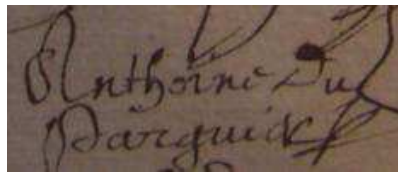 Anthoine du
Parquier